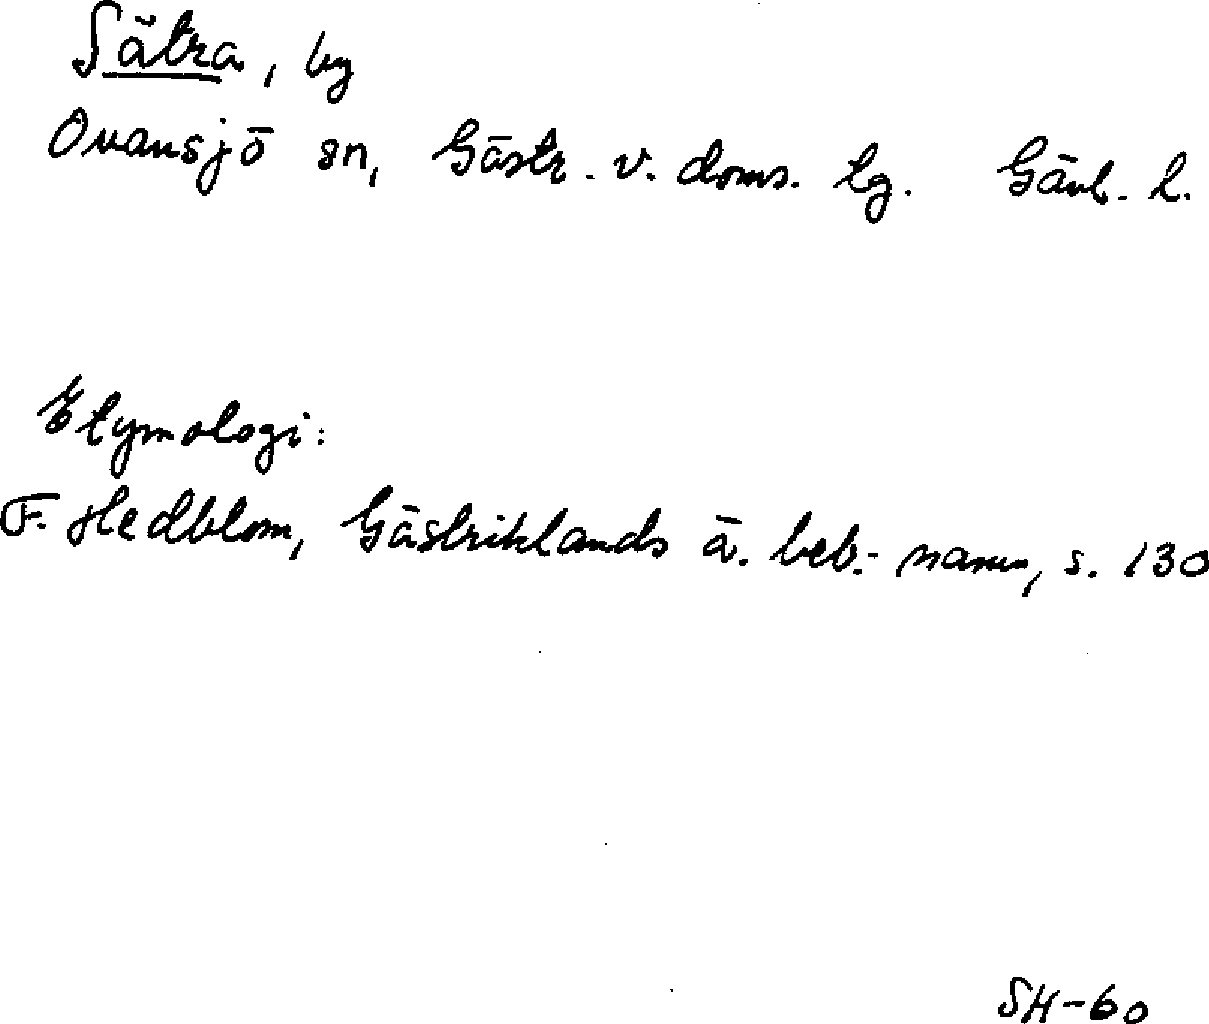 Sätra, by
Ovansjö sn, Gästr. v. doms. tg. Gävl. l.
Etymologi:
F. Hedblom, Gästriklands ä. beb.-namn, s. 130
SH-60